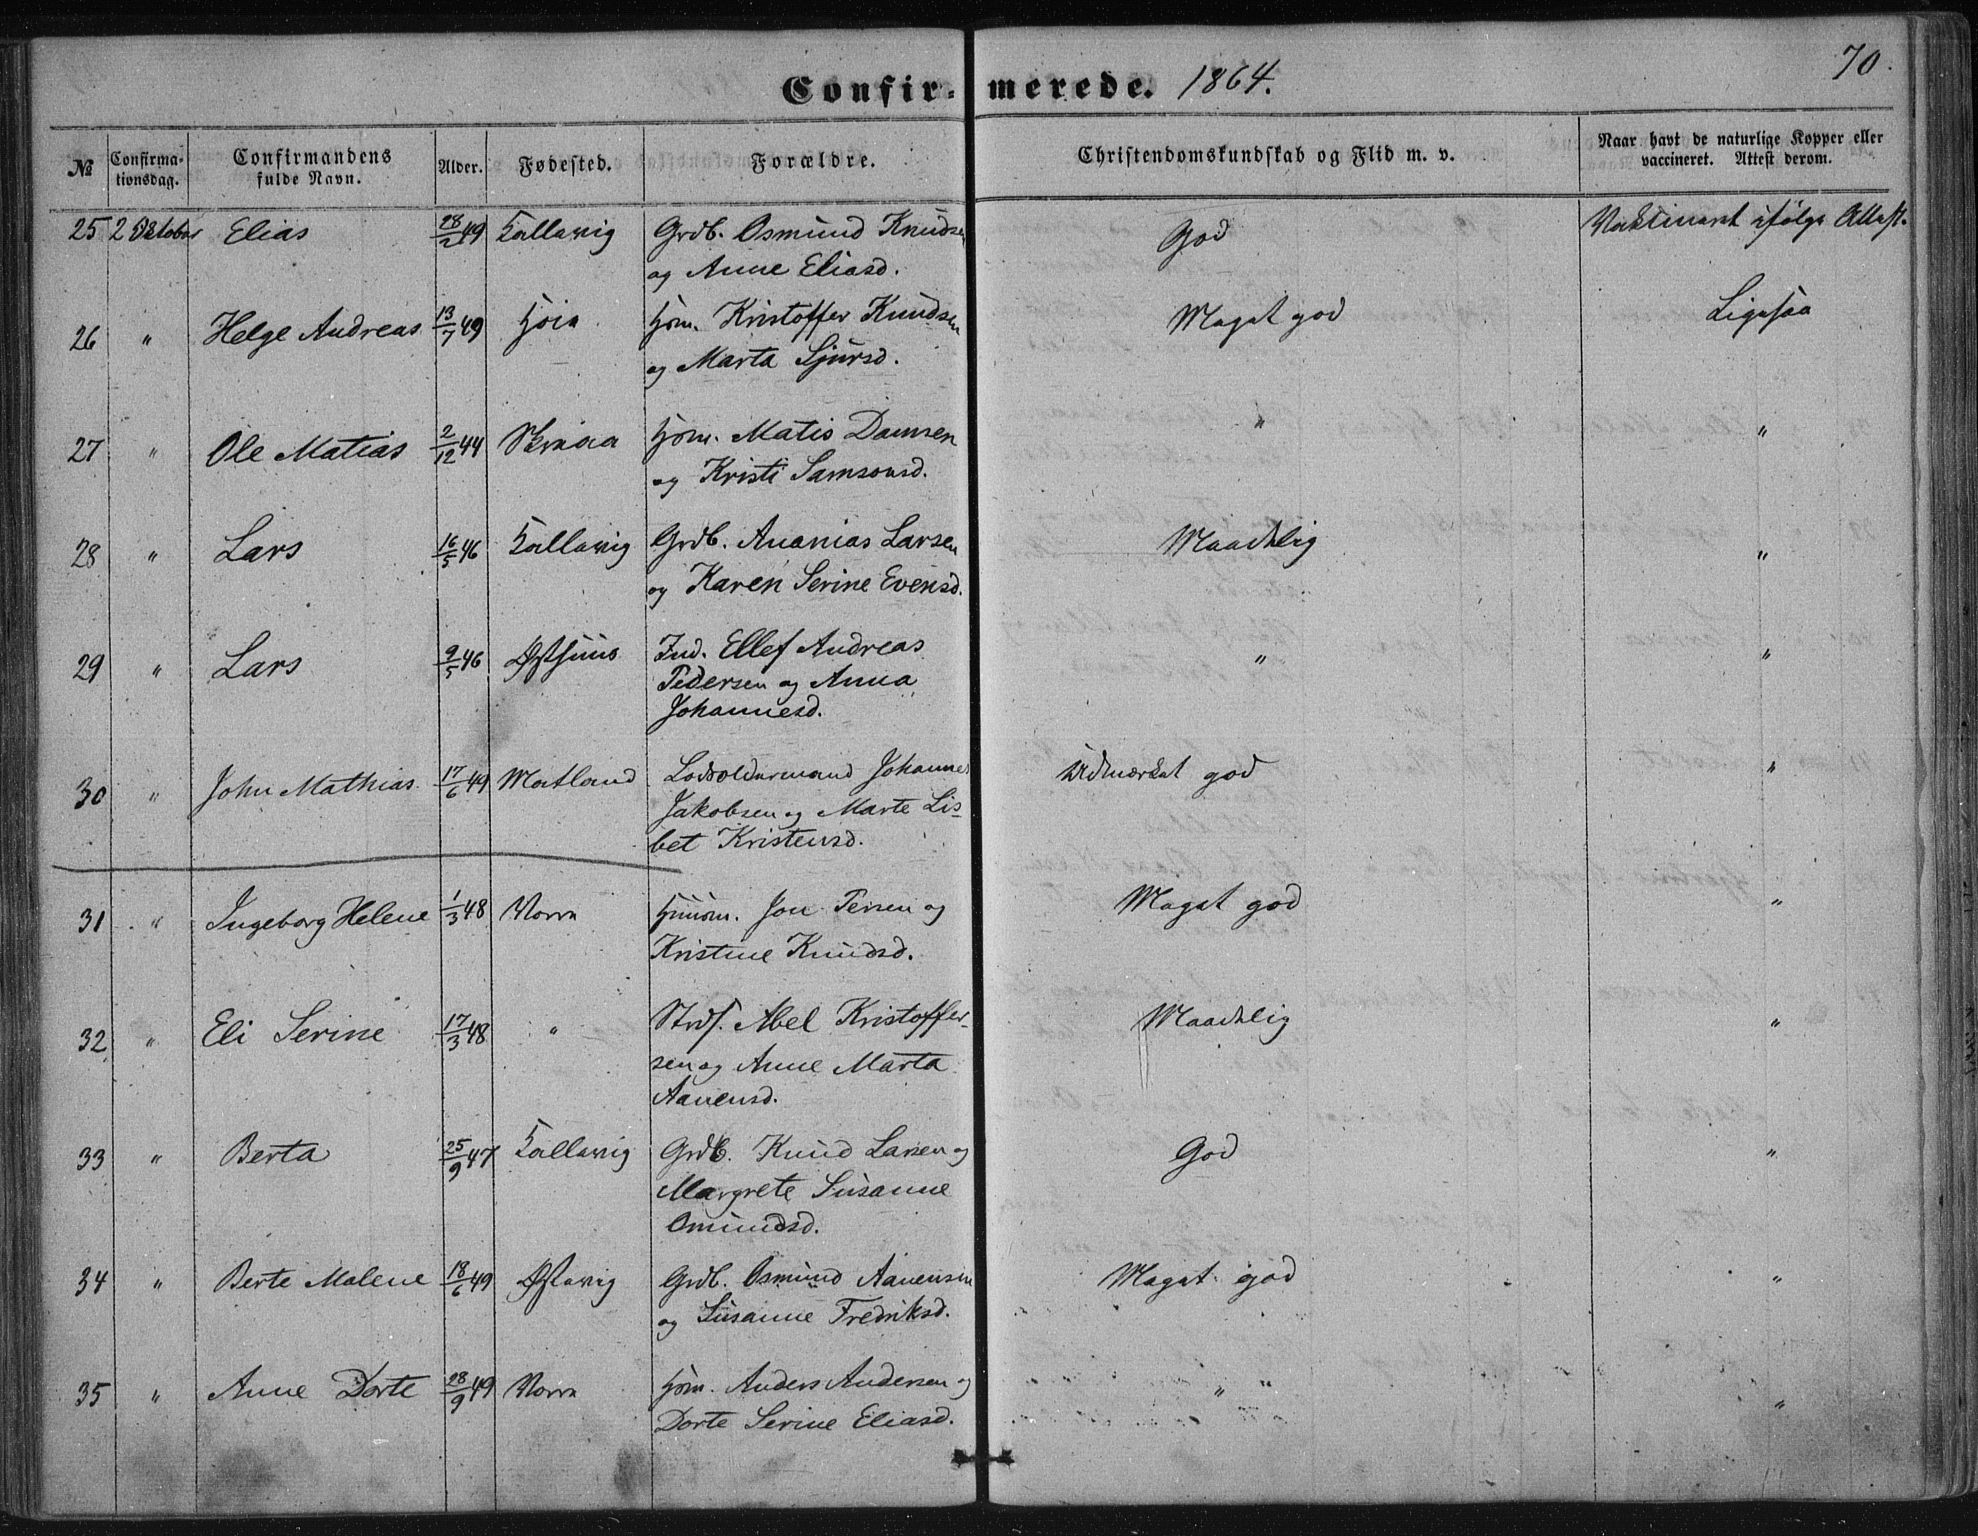 70.
Confirmerede. 1864.
№ Confirmationsdag. Confirmandens fulde Navn. Alder. Fødested. Forældre. Christendomskundskab og Flid m. v. Naar havt de naturlige Kopper eller vaccineret. Attest derom.
25 2 Oktober Elias 28/2 49 Kallavig Grdb. Osmund Knudsen God Vaktineret ifølge Attest.
og Anne Eliasd.
26 " Helge Andreas 13/7 49 Høie Hsm. Kristoffer Knudsen Meget god Ligesaa
og Marta Sjursd.
27 " Ole Matias 2/12 44 Hsm. Matis Damsen " "
og Kristi Samsonsd.
28 " Lars 16/5 46 Kallavig Grdb. Ananias Larsen Maadelig "
og Karen Serine Evensd.
29 " Lars 9/5 46 Østhuus Ind. Ellef Andreas " "
Pedersen og Anna
Johannesd.
30 " John Mathias 17/6 49 Matland Lodsoldermand Johannes Udmærket god "
Jakobsen og Marte Lis-
bet Kristensd.
31 " Ingeborg Helene 1/3 48 Vorre Huusm. Jon Persen og Meget god "
Kristine Knudsd.
32 " Eli Serine 17/3 48 " Strds. Abel Kristoffer- Maadelig "
sen og Anne Marta
Aanensd.
33 " Berta 25/9 47 Kallavig Grdb. Knud Larsen og God "
Margrete Susanne
Omundsd.
34 " Berte Malene 18/6 49 Østavig Grdb. Osmund Aanensen Meget god "
og Susanne Fredriksd.
35 " Anne Dorte 28/9 49 Vorre Hsm. Anders Andersen og " " "
Dorte Serine Eliasd.